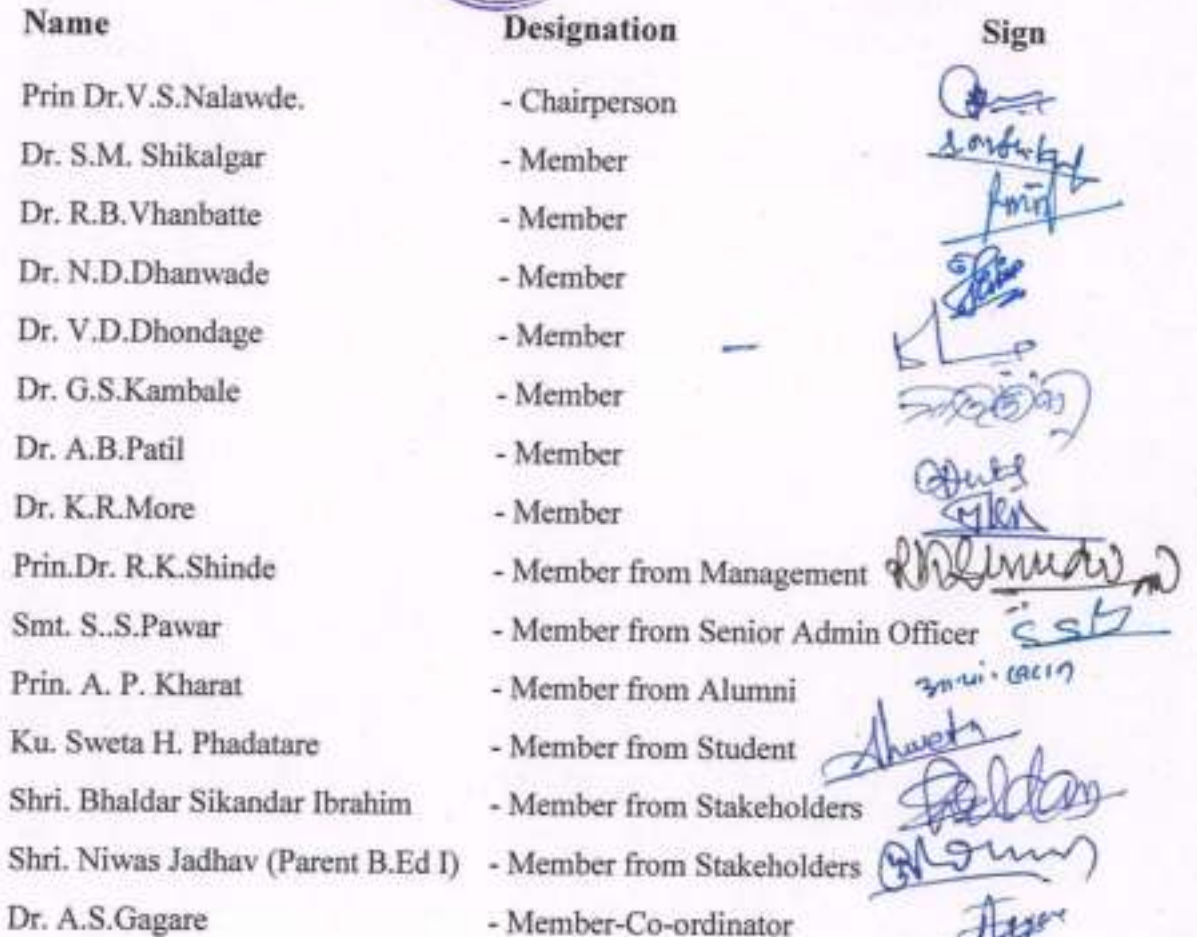 Name Designation Sign
Prin Dr.V.S.Nalawde. - Chairperson
Dr. S.M. Shikalgar - Member
Dr. R.B.Vhanbatte - Member
Dr. N.D.Dhanwade - Member
Dr. V.D.Dhondage - Member -
Dr. G.S.Kambale - Member
Dr. A.B.Patil - Member
Dr. K.R.More - Member
Prin.Dr. R.K.Shinde - Member from Management
Smt. S..S.Pawar - Member from Senior Admin Officer
Prin. A. P. Kharat - Member from Alumni
Ku. Sweta H. Phadatare - Member from Student Shweta
Shri. Bhaldar Sikandar Ibrahim - Member from Stakeholders
Shri. Niwas Jadhav (Parent B.Ed I) - Member from Stakeholders
Dr. A.S.Gagare - Member-Co-ordinator